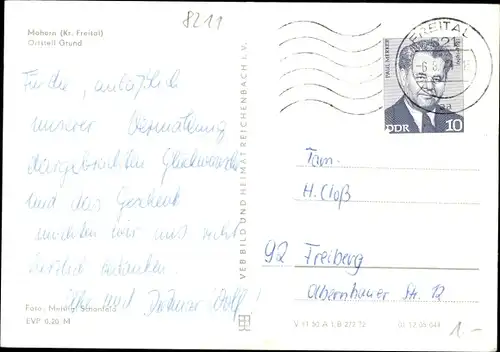 8211
Mohorn (Kr. Freital)
Ortsteil Grund
Für die, anläßlich
unserer Vermählung
dargebrachten Glückwünsche
und das Geschenk
möchten wir uns recht
herzlich bedanken.
und Wolf!
Foto: Schönfeld
EVP 0,20 M
VEB BILD UND HEIMAT REICHENBACH I. V.
FREITAL
821
PAUL MERKER
DDR 10
Fam.
H. Cloß
92 Freiberg
Str. 12
V 11 50 A 1/B 272/72
01 12 09 044
1.-